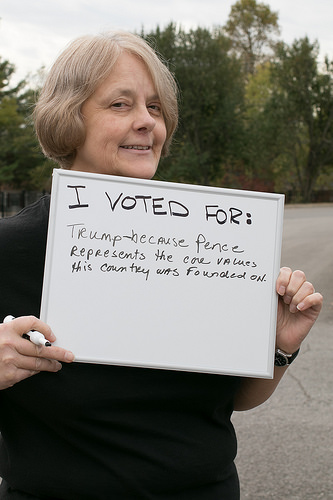 I VOTED FOR:
Trump-because Pence
Represents the core values
this country was Founded on.